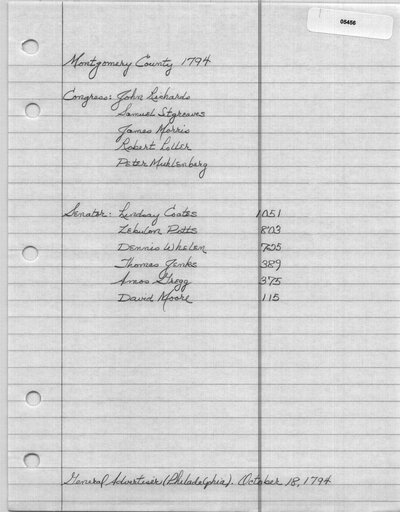 05456
Montgomery County 1794
Congress: John Richards
Samuel Sitgreaves
James Morris
Robert Loller
Peter Muhlenberg
Senator: Lindsay Coates 1051
Zebulon Potts 803
Dennis Whelen 725
Thomas Jenks 389
Amos Gregg 375
David Moore 115
General Advertiser (Philadelphia). October 18, 1794